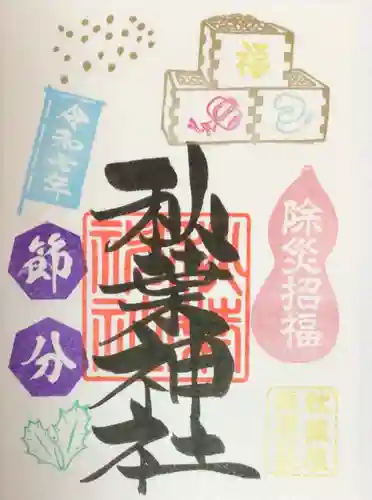 福
令和七年
節分
秋葉神社
除災招福